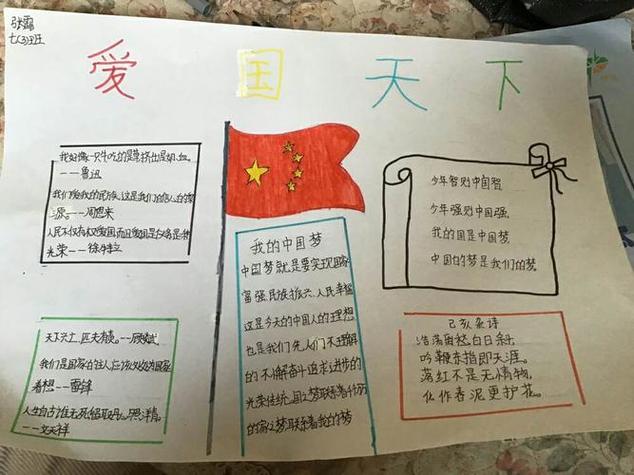 张露
七(3)班
爱国天下
我好像一只牛,吃的是草,挤出是奶,血。
——鲁迅
我们爱我的民族,这是我们自信人的
源。——周恩来
人民不仅有权爱国,而且爱国是
光荣——徐特立
天下兴亡,匹夫有责。——顾炎武
我们是国家的主人,应该处处为国家
着想——雷锋
人生自古谁无死,留取丹心照汗青。
——文天祥
我的中国梦
中国梦就是要实现国家
富强,民族振兴、人民幸福
这是今天的中国人的理想
也是我们先人们不
的不懈奋斗追求进步的
光荣传统,国之梦联系着
的家之梦联系着我的梦
少年智则中国智
少年强则中国强
我的国是中国梦
中国的梦是我们的梦
己亥杂诗
浩荡离愁白日斜
吟鞭东指即天涯。
落红不是无情物,
化作春泥更护花。